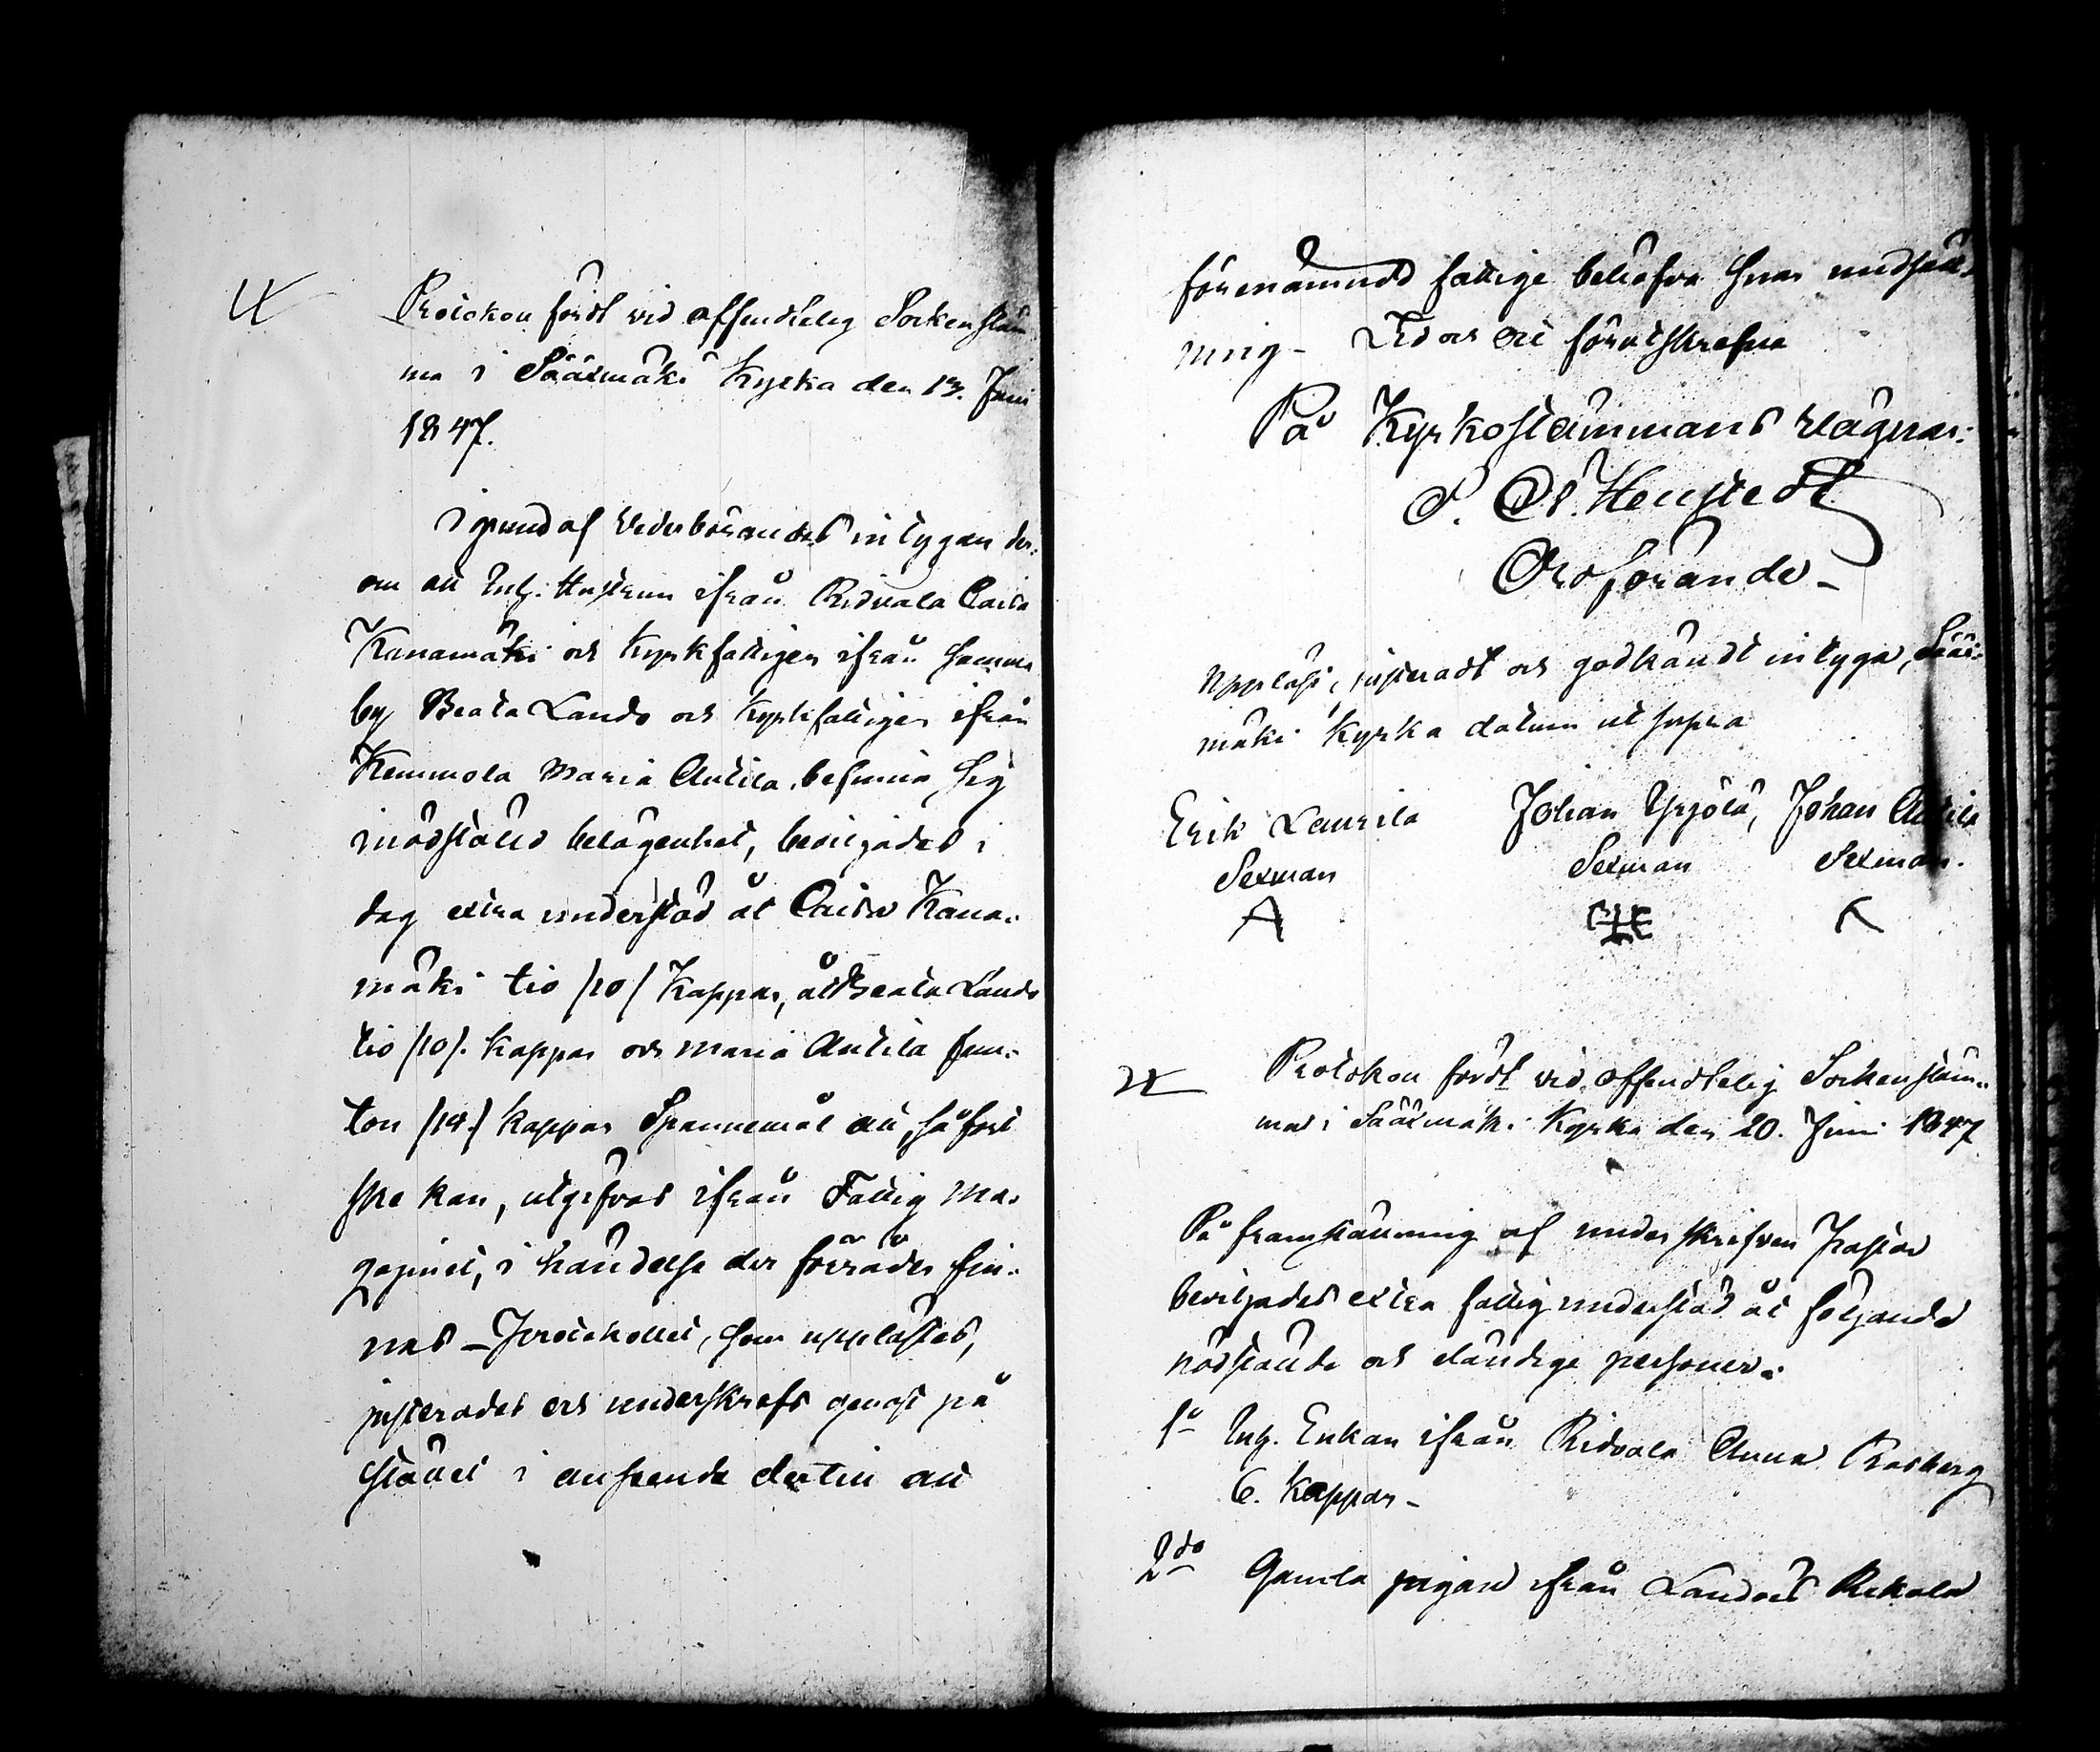 Protokoll fördt vid offendtelig Sockenstäm
ma i Sääxmäki Kyrka den 13. Juni
1847.
I grund af Vederbörandes intygan der-
om att Inh. Hustrun ifrån Ridvala Caisa
Kanamäki och Kyrkfattigen ifrån samma
by Beata Lands och Kyrkfattigen ifrån
Kemmola Maria Antila, befinna sig
i nödstäld belägenhet, beviljades i
dag extra understöd åt Caisa Kana-
mäki tio /10/ Kappar, åt Beata Lands
tio /10/. Kappar och Maria Antila fem-
ton /15/ kappar Spannemål att, så fort
ske kan, utgifvas ifrån Fattig Ma-
gazinet, i händelse der förråder fin-
nes – Protokollet, som upplästes,
justerades och underskrefs genast på
stället i anseende dertill att
förenämndt fattige behöfva snar undsätt-
ning – Tid och ort förutskrefne
På Kyrkostämmans vägnar:
Ordförande –
Uppläst, justeradt och godkändt intyga, Sääx-
mäki Kyrka datum ut supra
Erik Laurila Johan Yrjölä, Johan Antila
Sexman Sexman Sexman.
Protokoll fördt vid offendtelig Sockenstäm-
ma i Sääxmäki Kyrka den 20. Juni 1847
På framställning af underskrifven Pastor
beviljades extra fattig understöd åt följande
nödstälde och eländige personer.
1o Inh. Enkan ifrån Ridvala Anna Rasberg
6. Kappar –
2do Gamla pigan ifrån Rekola